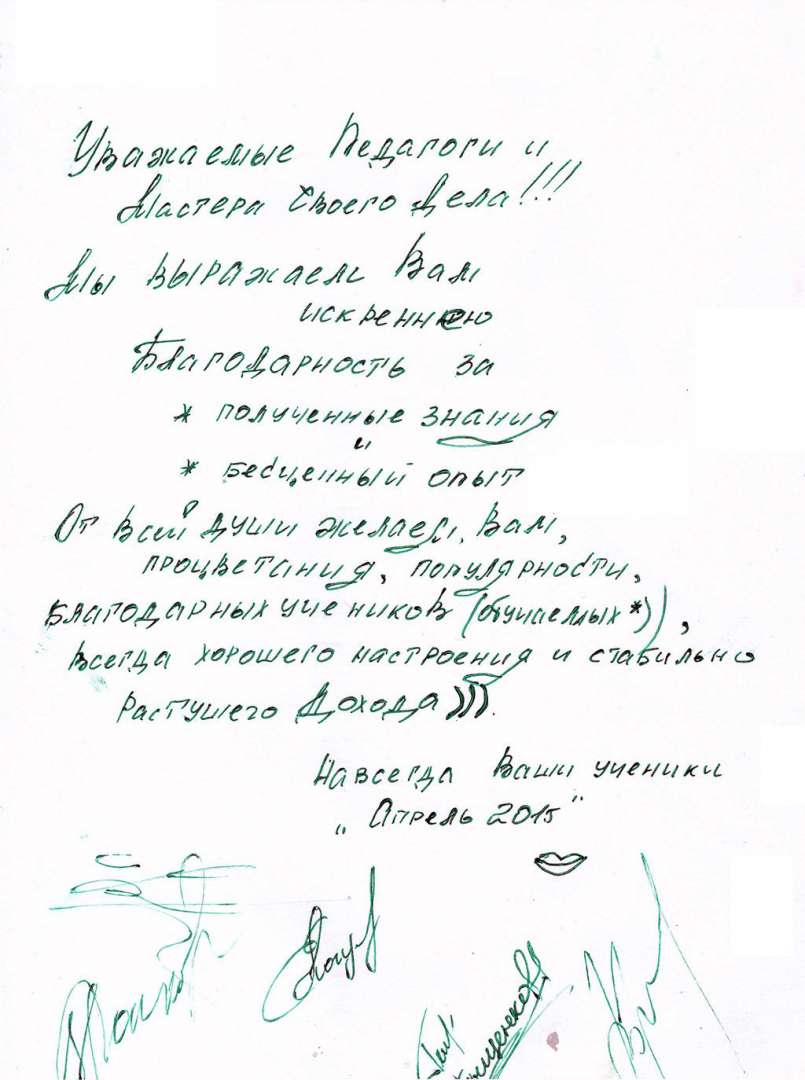 Уважаемые Педагоги и
Мастера Своего Дела!!!
Мы выражаем Вам
искреннюю
Благодарность за
* полученные знания
и
* бесценный опыт
От всей души желаем, Вам,
процветания, популярности,
благодарных учеников (обучаемых*)),
всегда хорошего настроения и стабильно
растушего Дохода))).
Навсегда Ваши ученики
„Апрель 2015"